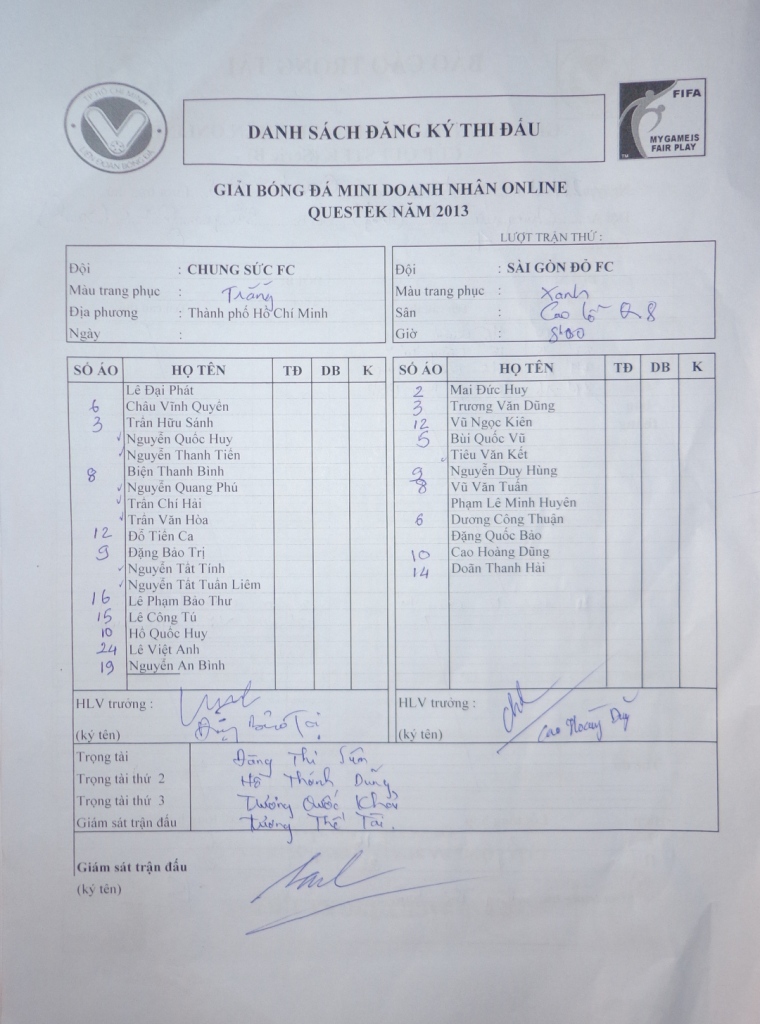 TP HỒ CHÍ MINH
LIÊN ĐOÀN BÓNG ĐÁ
DANH SÁCH ĐĂNG KÝ THI ĐẤU
FIFA
MY GAME IS
FAIR PLAY
TM
GIẢI BÓNG ĐÁ MINI DOANH NHÂN ONLINE
QUESTEK NĂM 2013
LƯỢT TRẬN THỨ :
Đội : CHUNG SỨC FC
Màu trang phục : Trắng
Địa phương : Thành phố Hồ Chí Minh
Ngày :
Đội : SÀI GÒN ĐỎ FC
Màu trang phục : Xanh
Sân : Cao Lỗ Q8
Giờ : 8h00
SỐ ÁO HỌ TÊN TĐ DB K
Lê Đại Phát
6 Châu Vĩnh Quyên
3 Trần Hữu Sánh
Nguyễn Quốc Huy
Nguyễn Thanh Tiến
8 Biện Thanh Bình
Nguyễn Quang Phú
Trần Chí Hải
Trần Văn Hòa
12 Đỗ Tiến Ca
9 Đặng Bảo Trị
Nguyễn Tất Tính
Nguyễn Tất Tuân Liêm
16 Lê Phạm Bảo Thư
15 Lê Công Tú
10 Hồ Quốc Huy
24 Lê Việt Anh
19 Nguyễn An Bình
SỐ ÁO HỌ TÊN TĐ DB K
2 Mai Đức Huy
3 Trương Văn Dũng
12 Vũ Ngọc Kiên
5 Bùi Quốc Vũ
Tiêu Văn Kết
9 Nguyễn Duy Hùng
8 Vũ Văn Tuấn
Phạm Lê Minh Huyên
6 Dương Công Thuận
Đặng Quốc Bảo
10 Cao Hoàng Dũng
14 Doãn Thanh Hải
HLV trưởng :
(ký tên) Đặng Bảo Trị
HLV trưởng :
(ký tên) Cao Hoàng Dũng
Trọng tài Đặng Thi
Trọng tài thứ 2 Hồ Thánh Dũng
Trọng tài thứ 3 Trương Quốc
Giám sát trận đấu Trương Thế Tài.
Giám sát trận đấu
(ký tên)